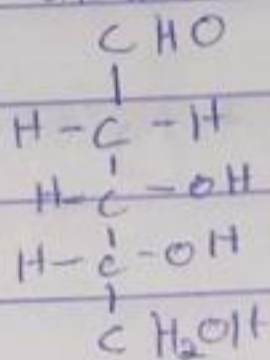 CHO
H-C-H
H-C-OH
H-C-OH
CH₂OH